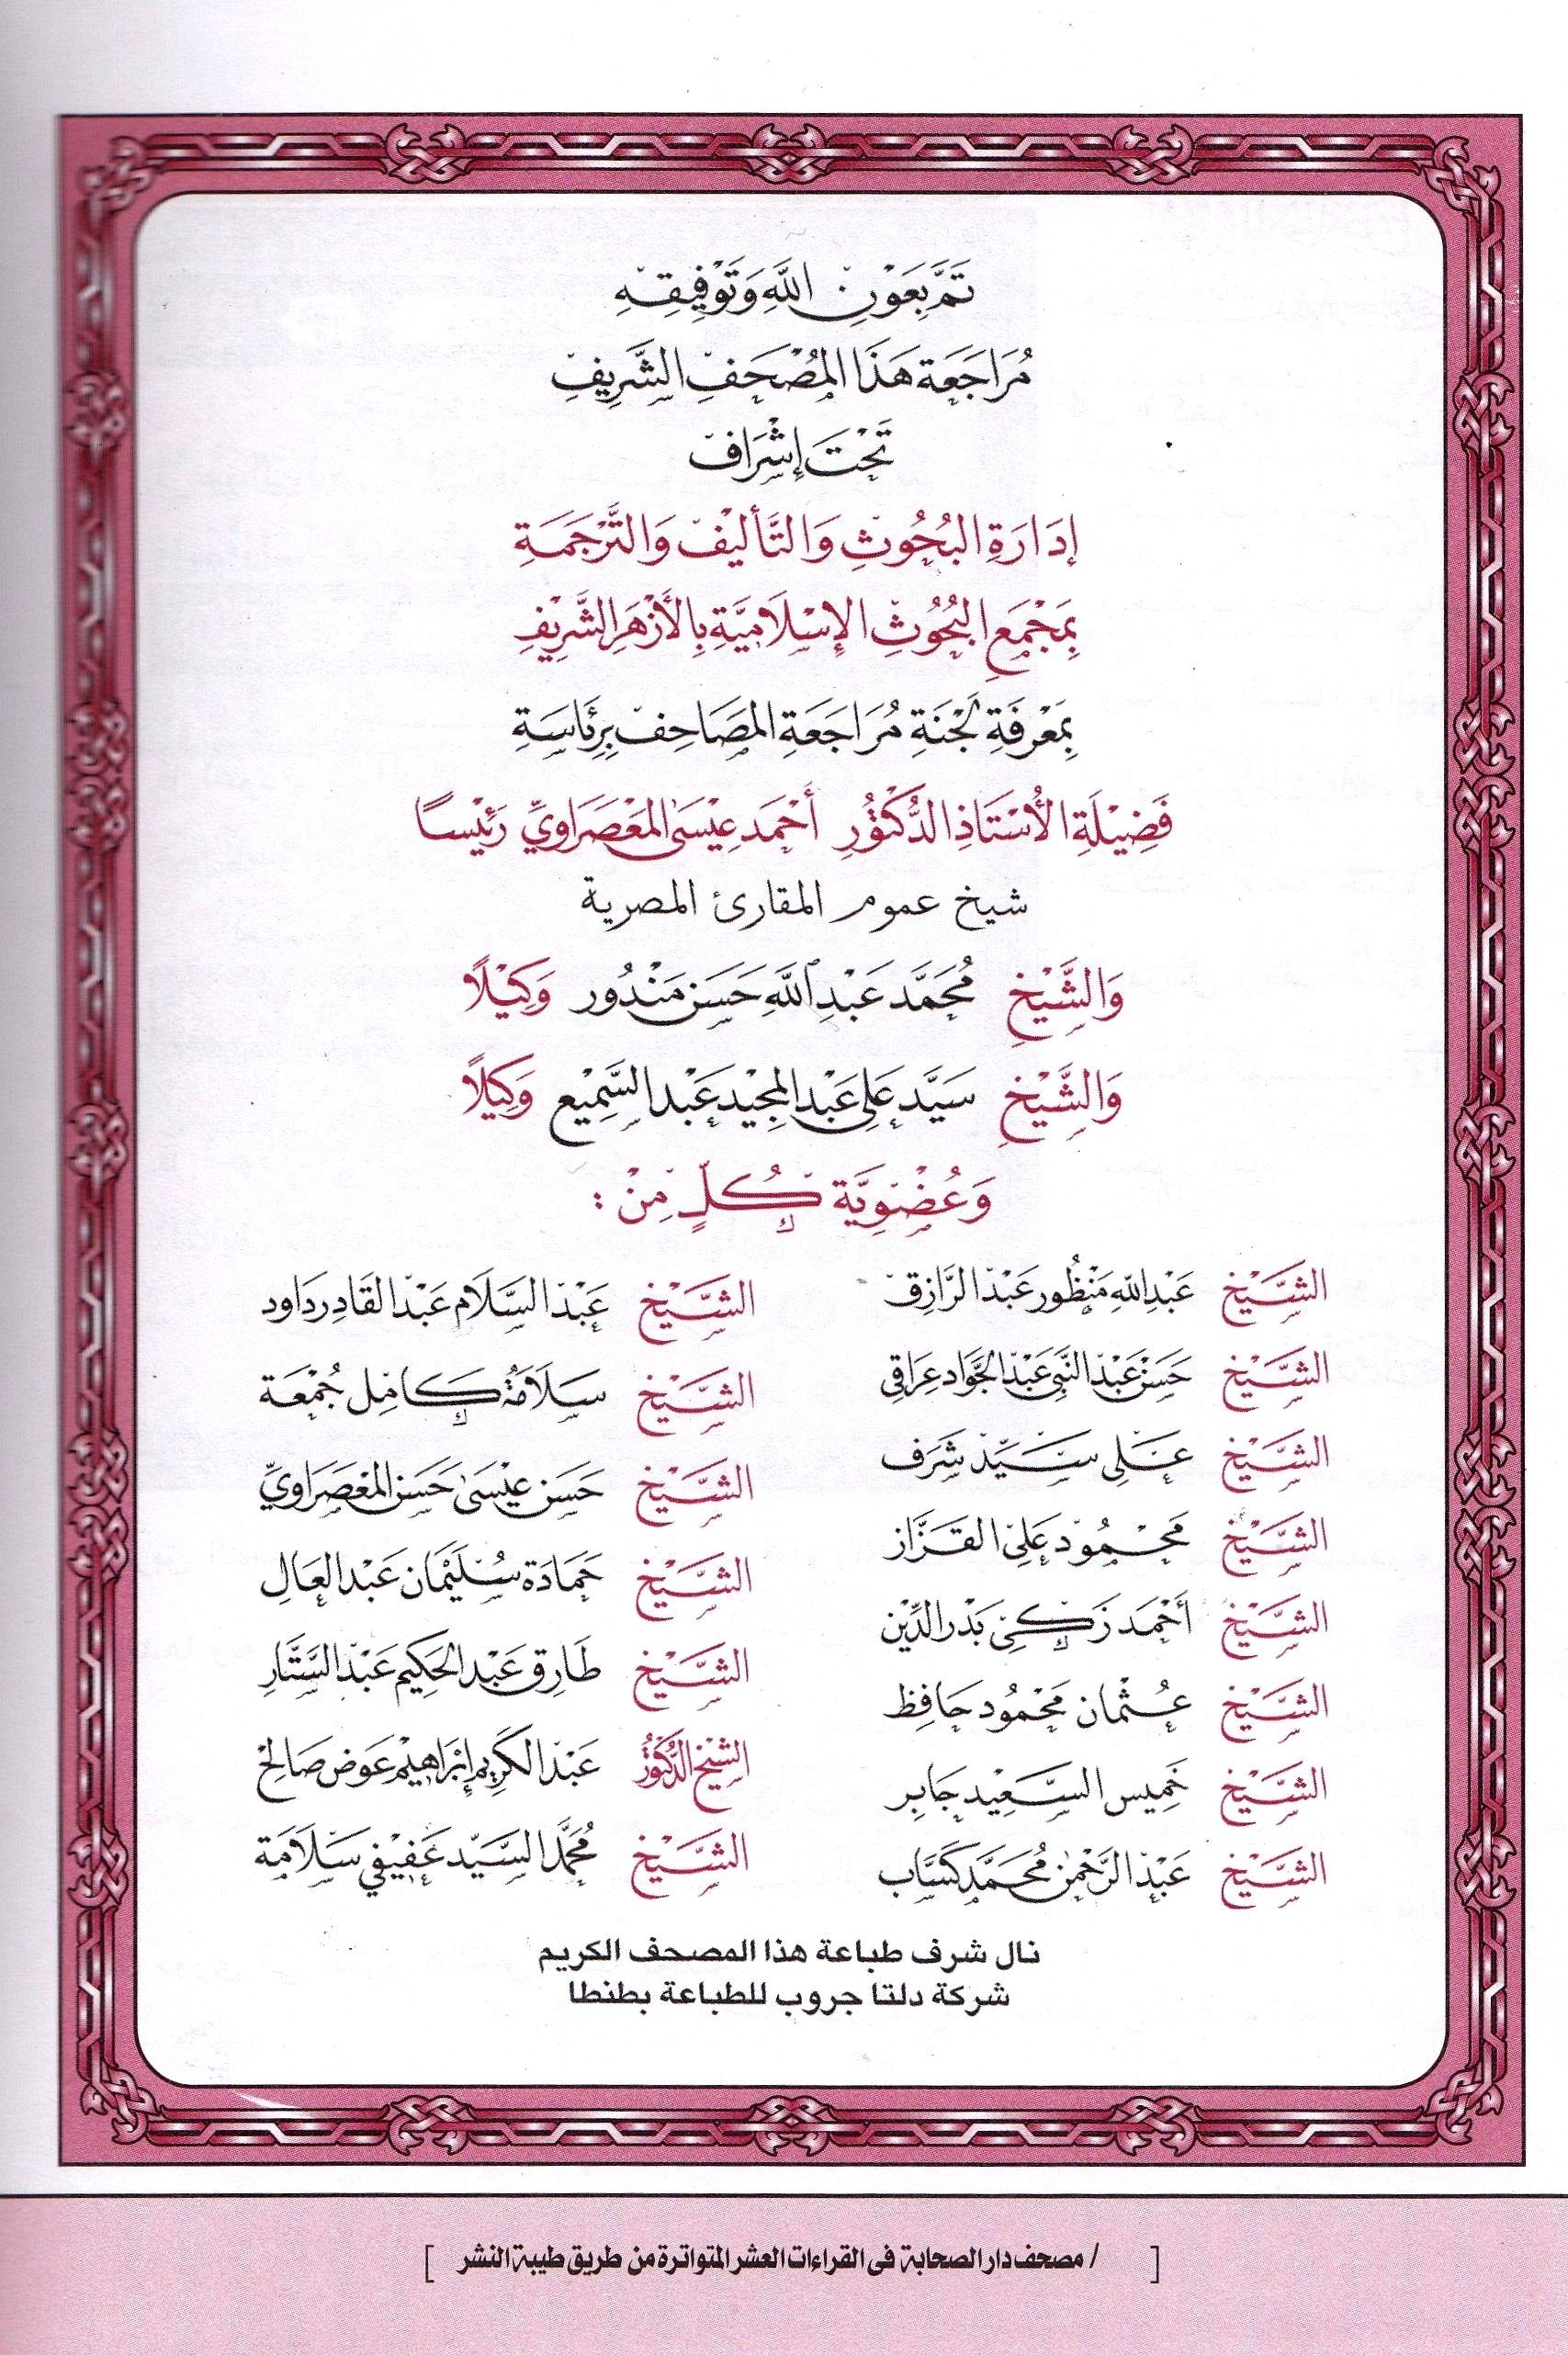 تَمَّ بِعَوْنِ اللَّهِ وَتَوْفِيقِهِ
مُرَاجَعَة هَذَا المُصْحَفِ الشَّرِيفِ
تَحْتَ إِشْرَاف
إِدَارَةِ البُحُوثِ وَالتَّأْلِيْف وَالتَّرْجَمَةِ
بِمَجْمَعِ البُحُوثِ الإِسْلَامِيَّةِ بِالأَزْهَرِ الشَّرِيْفِ
بِمَعْرِفَةِ لَجْنَةِ مُرَاجَعَةِ المَصَاحِف بِرِئَاسَةِ
فَضِيْلَةِ الأُسْتَاذِ الدُّكْتُوْرِ أَحْمَد عِيْسَى المَعْصَرَاوِيِّ رَئِيْسًا
شيخ عموم المقارئ المصرية
وَالشَّيْخِ مُحَمَّد عَبْدِ اللَّهِ حَسَن مَنْدُور وَكِيْلًا
وَالشَّيْخِ سَيَّد عَلِي عَبْد المَجِيْد عَبْد السَّمِيْع وَكِيْلًا
وَعُضْوِيَّة كُلٍّ مِنْ :
الشَّيْخ عَبْدِ اللهِ مَنْظُور عَبْد الرَّازِق
الشَّيْخ حَسَن عَبْد النَّبِي عَبْد الجَوَّاد عِرَاقِي
الشَّيْخ عَلِي سَيِّد شَرَف
الشَّيْخ مَحْمُود عَلِي القَزَّاز
الشَّيْخ أَحْمَد زَكِي بَدْر الدِّيْن
الشَّيْخ عُثْمَان مَحْمُود حَافِظ
الشَّيْخ خَمِيس السَّعِيْد جَابِر
الشَّيْخ عَبْد الرَّحْمٰن مُحَمَّد كَسَّاب
الشَّيْخ عَبْد السَّلَام عَبْد القَادِر دَاود
الشَّيْخ سَلَامَة كَامِل جُمْعَة
الشَّيْخ حَسَن عِيْسَى حَسَن المَعْصَرَاوِيِّ
الشَّيْخ حَمَادَة سُلَيْمَان عَبْد العَال
الشَّيْخ طَارِق عَبْد الحَكِيْم عَبْد السَّتَّارِ
الشَّيْخ الدُّكْتُوْر عَبْد الكَرِيْم إِبْرَاهِيْم عَوَض صَالِحْ
الشَّيْخ مُحَمَّد السَّيِّد عَفِيْفِي سَلَامَة
نال شرف طباعة هذا المصحف الكريم
شركة دلتا جروب للطباعة بطنطا
[ / مصحف دار الصحابة فى القراءات العشر المتواترة من طريق طيبة النشر ]